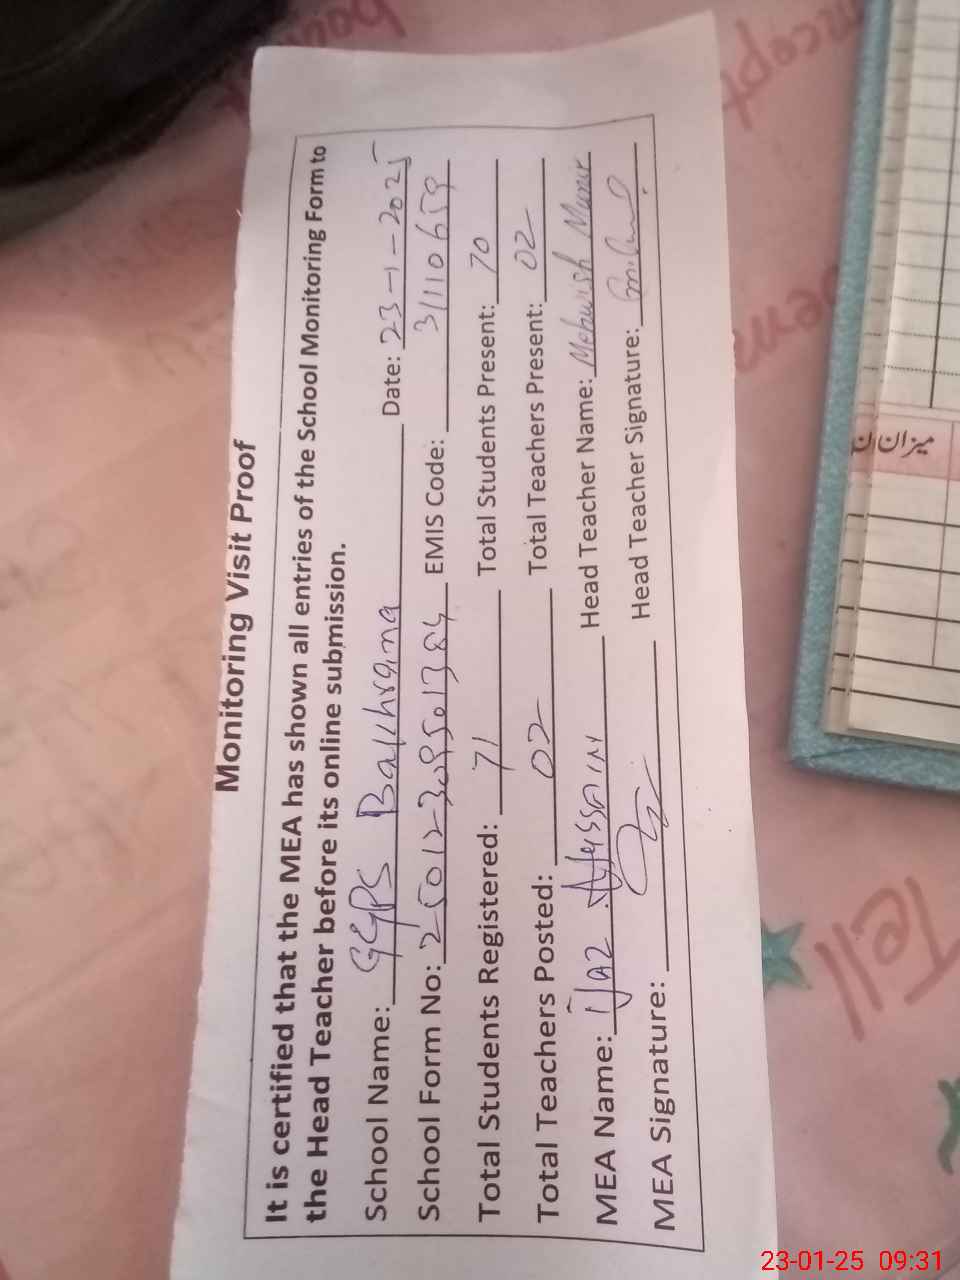 Monitoring Visit Proof
It is certified that the MEA has shown all entries of the School Monitoring Form to
the Head Teacher before its online submission.
School Name: GGPS Date: 23-1-2025
School Form No: EMIS Code: 31110659
Total Students Registered: 71 Total Students Present: 70
Total Teachers Posted: 02 Total Teachers Present: 02
MEA Name: Ijaz Hussain Head Teacher Name: Mehwish Munir
MEA Signature: Head Teacher Signature:
میزان
Tell
23-01-25 09:31